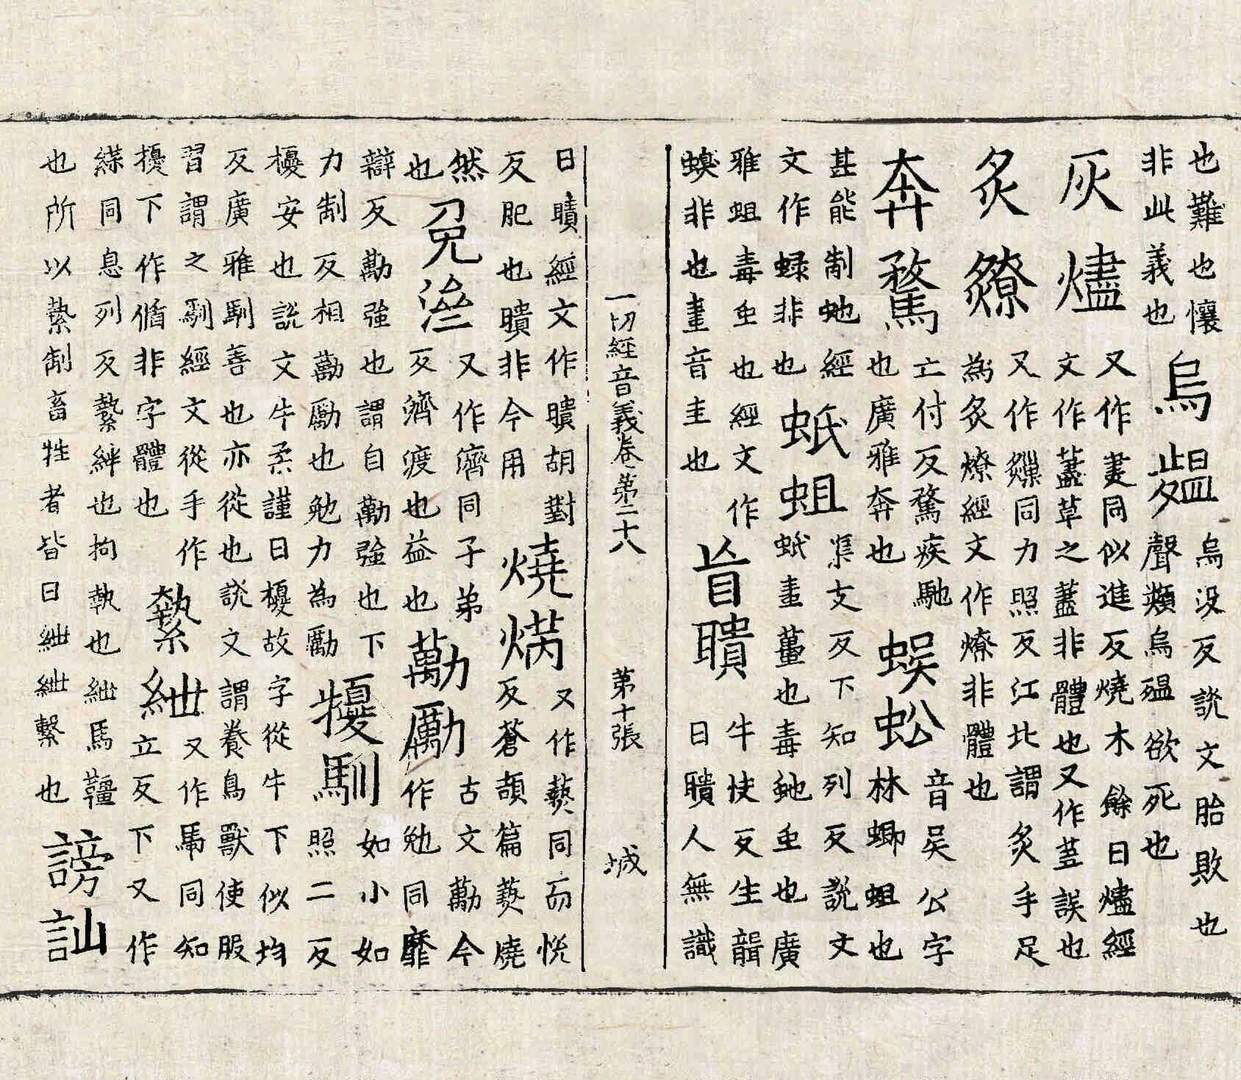 也難也懷
非此義也
烏殟
烏没反説文胎敗也
聲類烏殟欲死也
灰燼
又作㶳同似進反燒木餘曰燼經
文作藎草之藎非體也又作荩誤也
炙燎
又作同力照反江北謂炙手足
為炙燎經文作燎非體也
奔騖
亡付反騖疾馳
也廣雅奔也
蜈蚣
音吴公字
林蝍蛆也
甚能制虵經
文作非也
蚔蛆
渠支反下知列反説文
蚔畫蠆也毒虵虫也廣
雅蛆毒虫也經文作
非也畫音圭也
盲聵
牛快反生聾
曰聵人無識
一切經音義卷第二十八 第十張 城
曰聵經文作瞶胡對
反肥也瞶非今用
燒焫
又作爇同而悅
反蒼頡篇爇燒
然
也
免
又作濟同子弟
反濟渡也益也
勱勵
古文勱今
作勉同靡
辯反勱強也謂自勱強也下
力制反相勸勵也勉力為勵
擾馴
如小如
照二反
擾安也説文牛柔謹曰擾故字從牛下似均
反廣雅馴善也亦從也説文謂養鳥獸使服
習謂之馴經文從手作
擾下作循非字體也
縶紲
又作馽同知
立反下又作
緤同息列反縶絆也拘執也紲馬韁
也所以縶制畜牲者皆曰紲紲繫也
謗訕